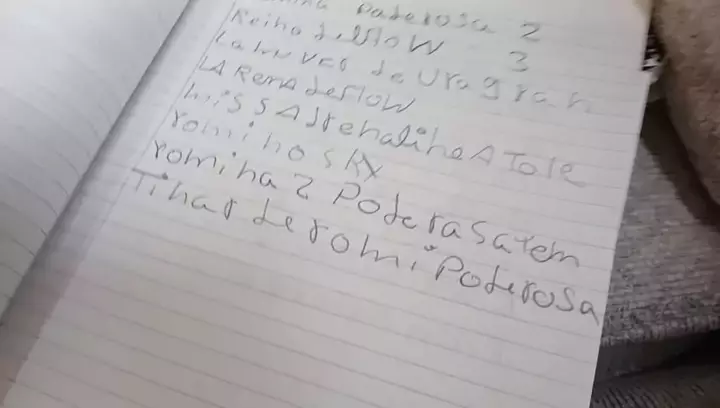 Poderosa 2
Reina del flow 3
La nuves de uragran
LA Rena de flow
miss Adrehaline A Tole
romihosky
romina 2 Poderasatem
Tihas de romi Poderosa